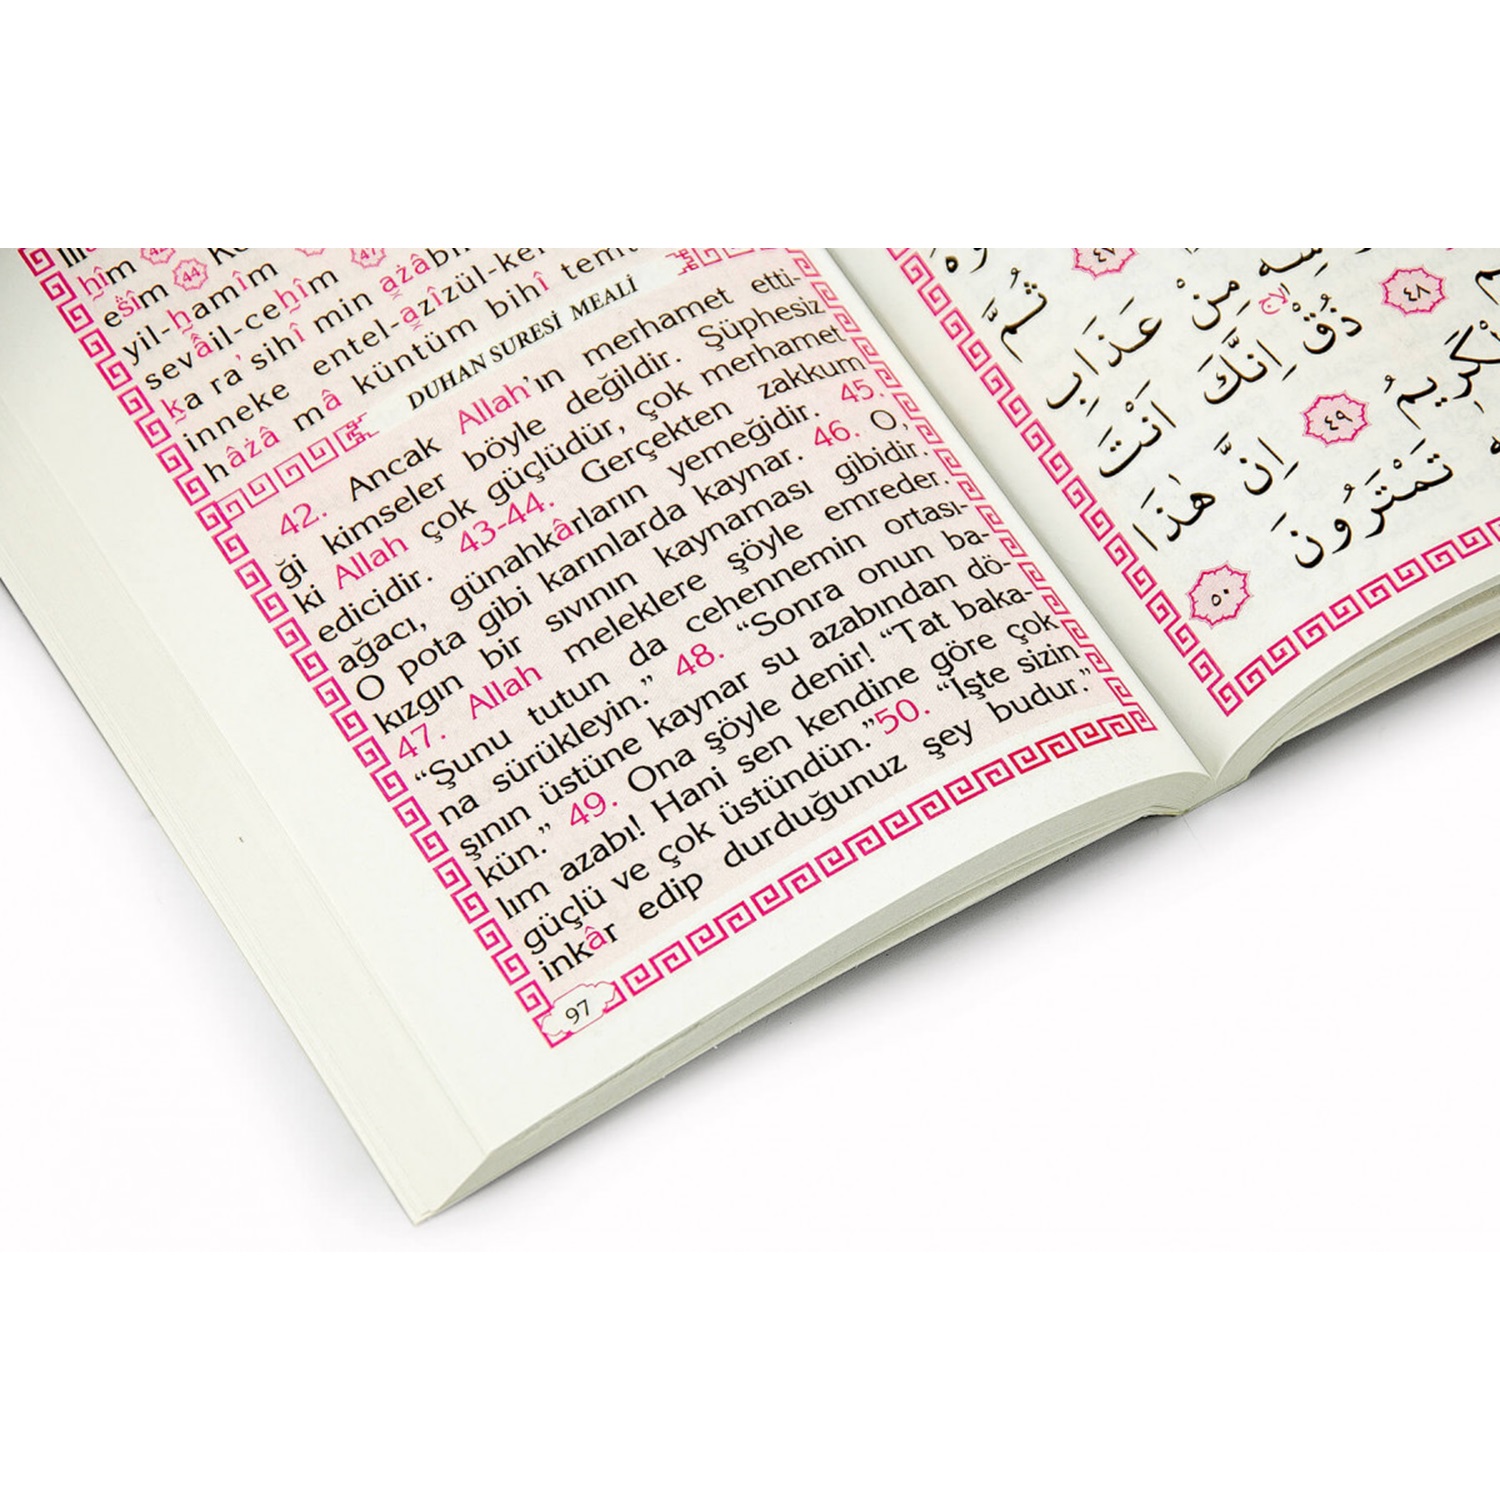 hîm 42
eśîm 44
yil-hamîm 47
sevâil-cehîm min azâbi
ka ra'sihî entel-azîzül-ke
inneke küntüm bihî temt
hâżâ mâ
DUHAN SURESİ MEALİ
42. Ancak Allah'ın merhamet etti-
ği kimseler böyle değildir. Şüphesiz
ki Allah çok güçlüdür, çok merhamet
edicidir. 43-44. Gerçekten zakkum
ağacı, günahkârların yemeğidir. 45.
O pota gibi karınlarda kaynar. 46. O,
kızgın bir sıvının kaynaması gibidir.
47. Allah meleklere şöyle emreder.
“Şunu tutun da cehennemin ortası-
na sürükleyin.” 48. “Sonra onun ba-
şının üstüne kaynar su azabından dö-
kün.” 49. Ona şöyle denir! “Tat baka-
lım azabı! Hani sen kendine göre çok
güçlü ve çok üstündün.”50. “İşte sizin
inkâr edip durduğunuz şey budur.”
97
٤٧ ثُمَّ
مِنْ عَذَابِ
٤٨ ذُقْ اِنَّكَ اَنْتَ
الْكَرِيمُ ٤٩ اِنَّ هٰذَا
تَمْتَرُونَ ٥٠